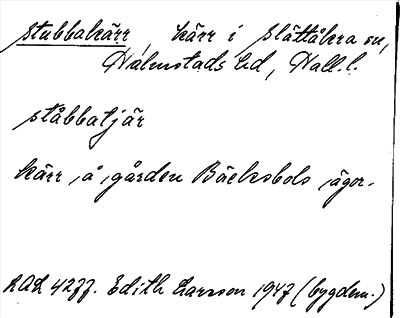 Stubbakärr, kärr i Slättåkra sn,
Halmstads hd, Hall. l.
ståbbatjär
kärr å gården Bäcksbols ägor.
LAL 4277. Edith Larsson 1947 (bygdem.)